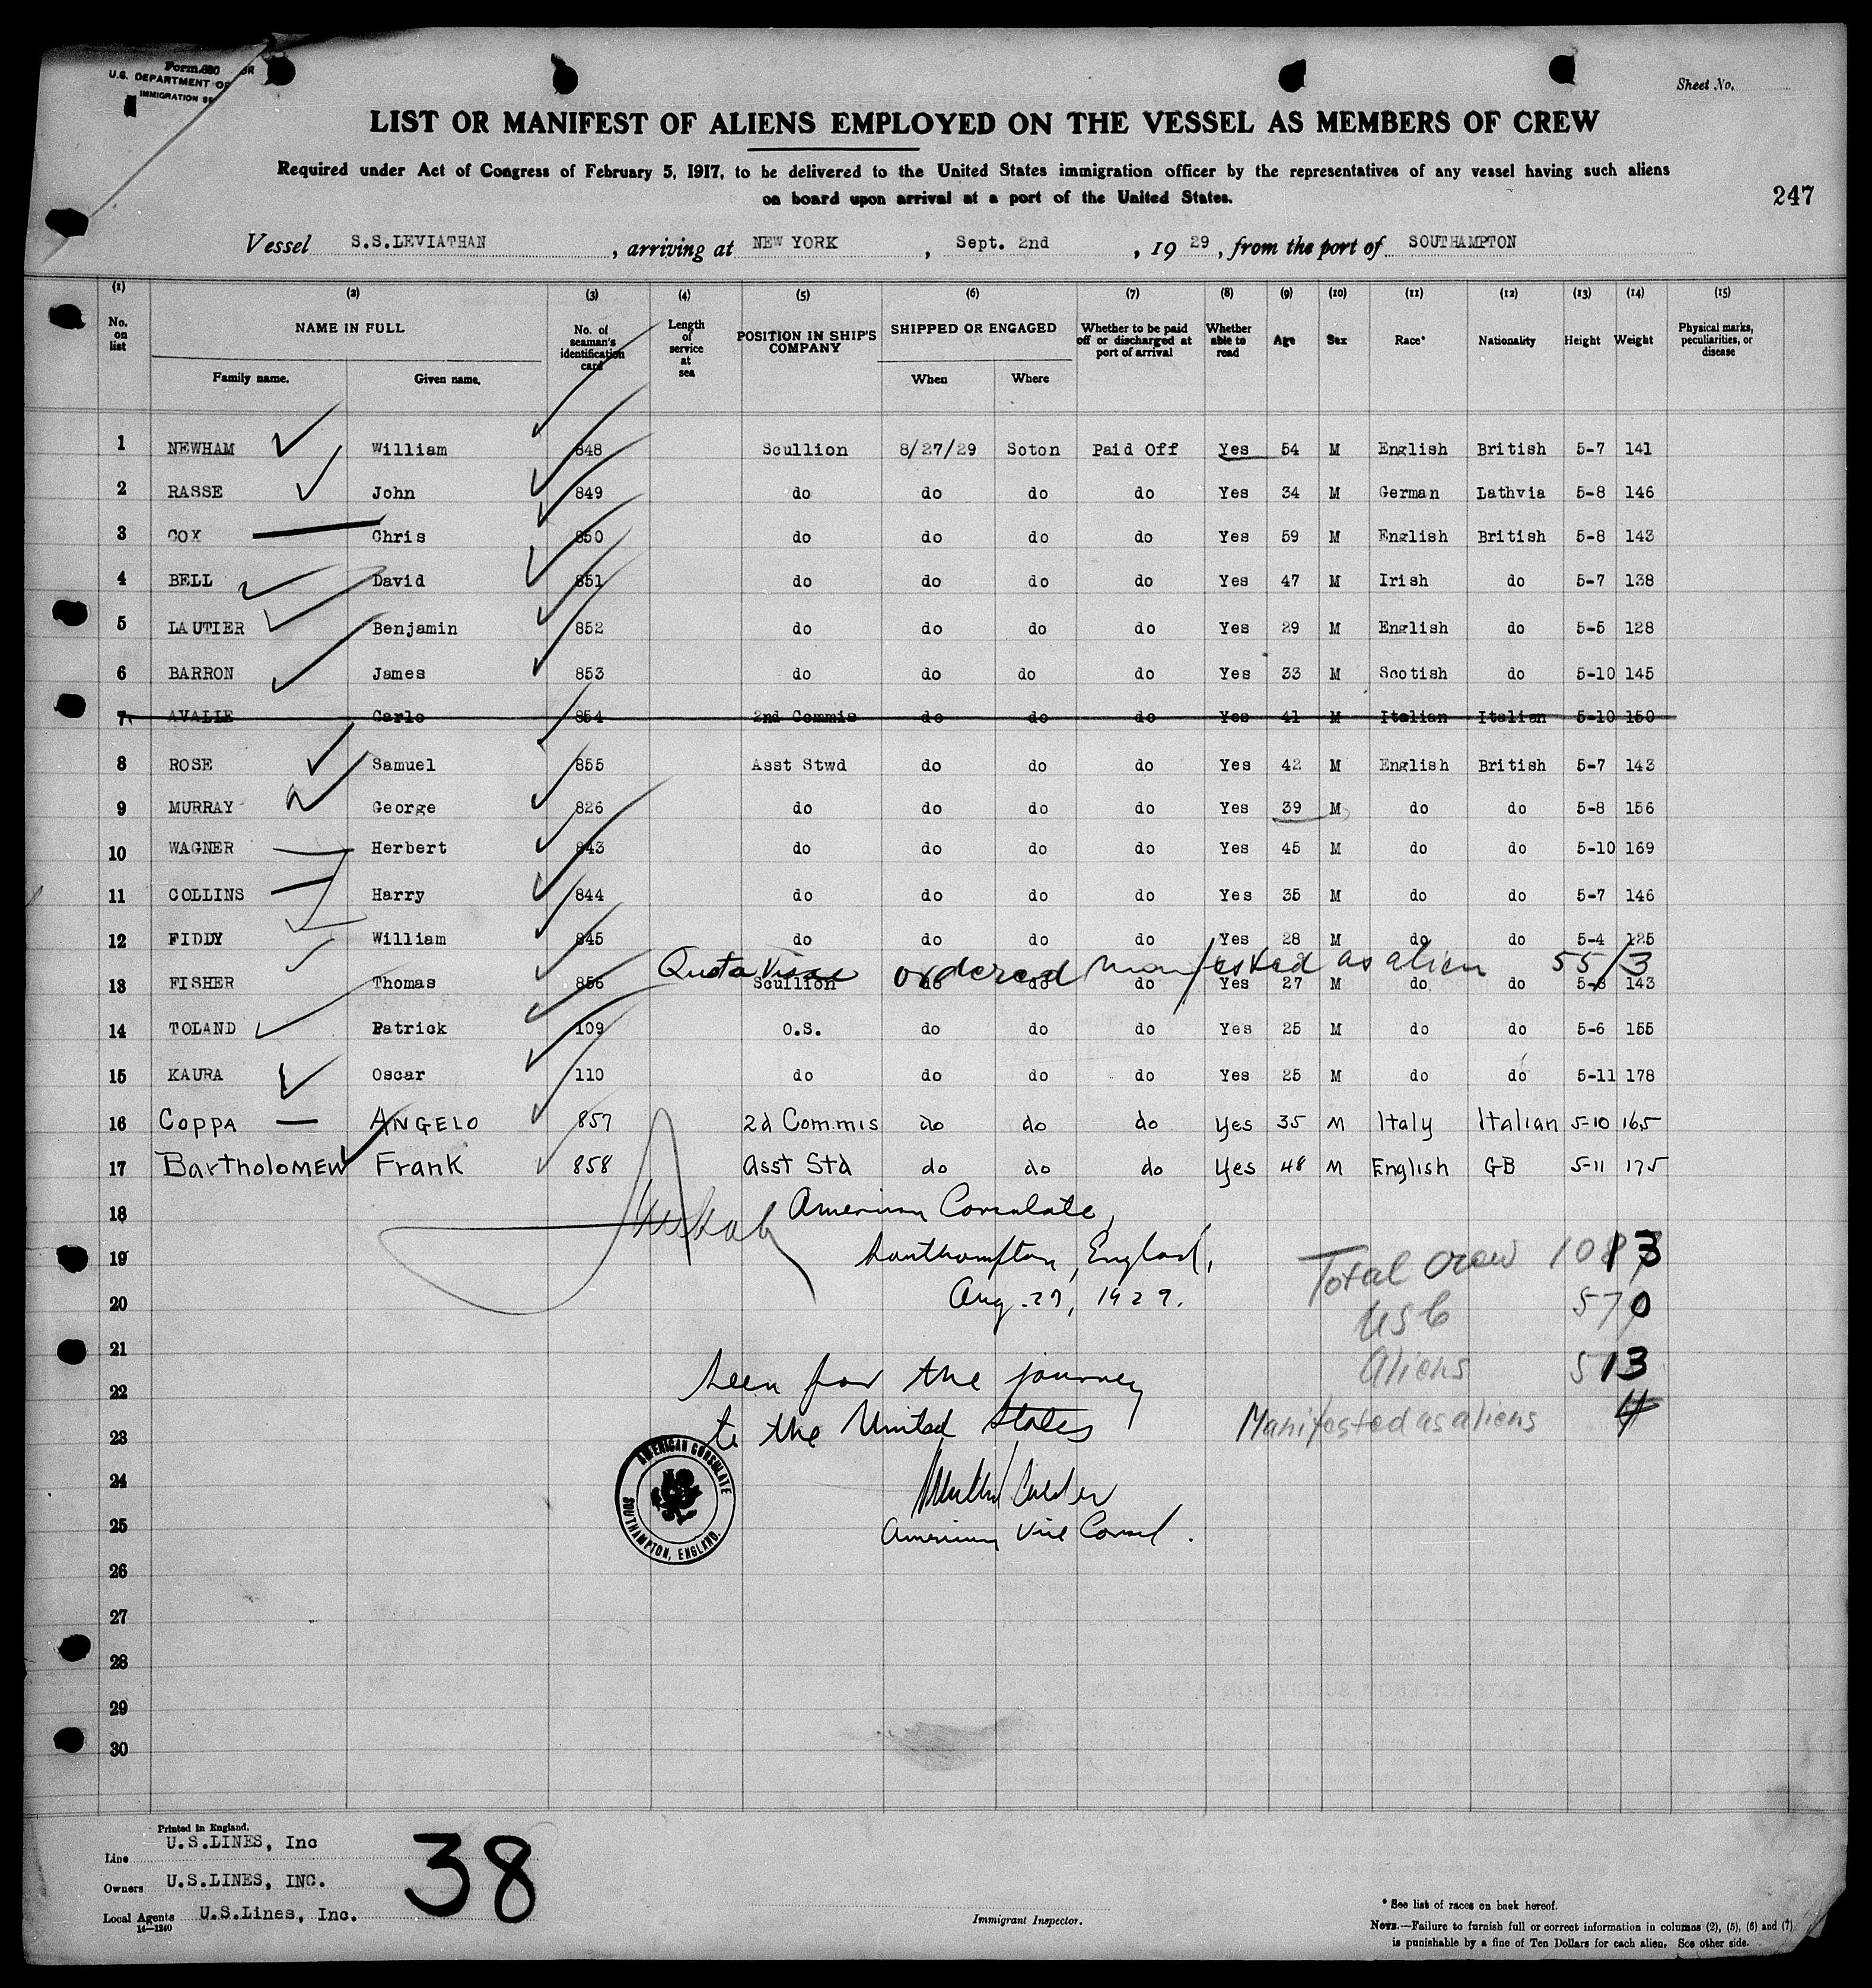 Form 680
U.S. DEPARTMENT OF
IMMIGRATION
Sheet No.
LIST OR MANIFEST OF ALIENS EMPLOYED ON THE VESSEL AS MEMBERS OF CREW
Required under Act of Congress of February 5, 1917, to be delivered to the United States immigration officer by the representatives of any vessel having such aliens
on board upon arrival at a port of the United States.
247
Vessel S.S.LEVIATHAN, arriving at NEW YORK, Sept. 2nd, 19 29, from the port of SOUTHAMPTON
(1) (2) (3) (4) (5) (6) (7) (8) (9) (10) (11) (12) (13) (14) (15)
No. on list NAME IN FULL No. of seaman's identification card Length of service at sea POSITION IN SHIP'S COMPANY SHIPPED OR ENGAGED Whether to be paid off or discharged at port of arrival Whether able to read Age Sex Race* Nationality Height Weight Physical marks, peculiarities, or disease
Family name. Given name. When Where
1 NEWHAM William 848 Scullion 8/27/29 Soton Paid Off Yes 54 M English British 5-7 141
2 RASSE John 849 do do do do Yes 34 M German Lathvia 5-8 146
3 COX Chris 850 do do do do Yes 59 M English British 5-8 143
4 BELL David 851 do do do do Yes 47 M Irish do 5-7 138
5 LAUTIER Benjamin 852 do do do do Yes 29 M English do 5-5 128
6 BARRON James 853 do do do do Yes 33 M Scotish do 5-10 145
7 AVALLE Carlo 854 2nd Commis do do do Yes 41 M Italian Italian 5-10 150
8 ROSE Samuel 855 Asst Stwd do do do Yes 42 M English British 5-7 143
9 MURRAY George 826 do do do do Yes 39 M do do 5-8 156
10 WAGNER Herbert 843 do do do do Yes 45 M do do 5-10 169
11 COLLINS Harry 844 do do do do Yes 35 M do do 5-7 146
12 FIDDY William 845 do do do do Yes 28 M do do 5-4 125
Quota Visae ordered manifested as alien 55/3
13 FISHER Thomas 856 Scullion do do do Yes 27 M do do 5-8 143
14 TOLAND Patrick 109 O.S. do do do Yes 25 M do do 5-6 155
15 KAURA Oscar 110 do do do do Yes 25 M do do 5-11 178
16 COPPA ANGELO 857 2d Commis do do do Yes 35 M Italy Italian 5-10 165
17 BartholomEW Frank 858 Asst Std do do do Yes 48 M English GB 5-11 175
18 American Consulate,
19 Southampton, England,
Total crew 1083
20 Aug. 27, 1929.
USC 570
21
Aliens 513
22 Seen for the journey
Manifested as aliens
23 to the United States
24
25 American Vice Consul.
AMERICAN CONSULATE
SOUTHAMPTON, ENGLAND.
26
27
28
29
30
Printed in England.
Line U.S.LINES, Inc
Owners U.S.LINES, INC.
Local Agents U.S.Lines, Inc.
14—1240
38
Immigrant Inspector.
* See list of races on back hereof.
NOTE.—Failure to furnish full or correct information in columns (2), (5), (6) and (7)
is punishable by a fine of Ten Dollars for each alien. See other side.